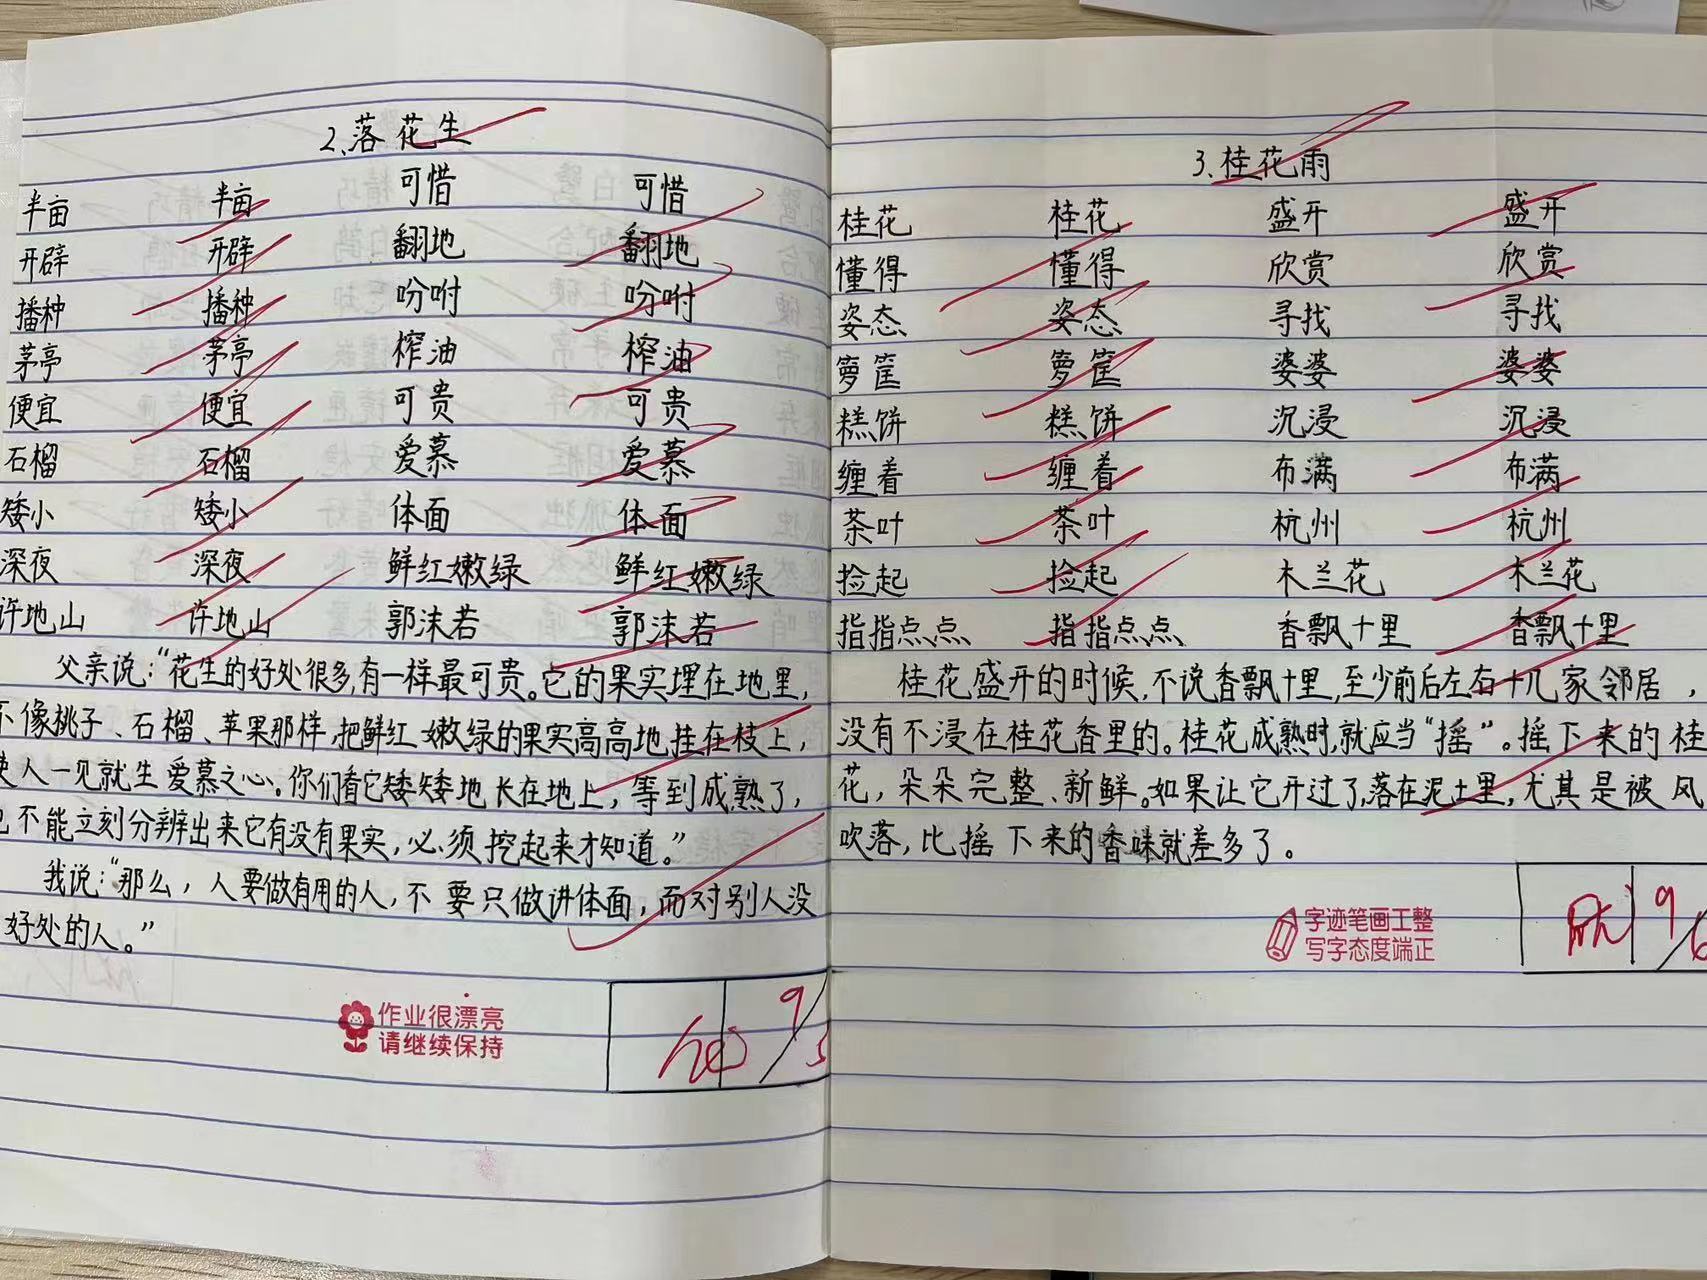 2、落花生
半亩 半亩 可惜 可惜
开辟 开辟 翻地 翻地
播种 播种 吩咐 吩咐
茅亭 茅亭 榨油 榨油
便宜 便宜 可贵 可贵
石榴 石榴 爱慕 爱慕
矮小 矮小 体面 体面
深夜 深夜 鲜红嫩绿 鲜红嫩绿
许地山 许地山 郭沫若 郭沫若
父亲说:“花生的好处很多,有一样最可贵。它的果实埋在地里,
不像桃子、石榴、苹果那样,把鲜红嫩绿的果实高高地挂在枝上,
使人一见就生爱慕之心。你们看它矮矮地长在地上,等到成熟了,
也不能立刻分辨出来它有没有果实,必须挖起来才知道。”
我说:“那么,人要做有用的人,不要只做讲体面,而对别人没
好处的人。”
作业很漂亮
请继续保持
9/5
3、桂花雨
桂花 桂花 盛开 盛开
懂得 懂得 欣赏 欣赏
姿态 姿态 寻找 寻找
箩筐 箩筐 婆婆 婆婆
糕饼 糕饼 沉浸 沉浸
缠着 缠着 布满 布满
茶叶 茶叶 杭州 杭州
捡起 捡起 木兰花 木兰花
指指点点 指指点点 香飘十里 香飘十里
桂花盛开的时候,不说香飘十里,至少前后左右十几家邻居,
没有不浸在桂花香里的。桂花成熟时,就应当“摇”。摇下来的桂
花,朵朵完整、新鲜。如果让它开过了,落在泥土里,尤其是被风
吹落,比摇下来的香味就差多了。
字迹笔画工整
写字态度端正
9/6